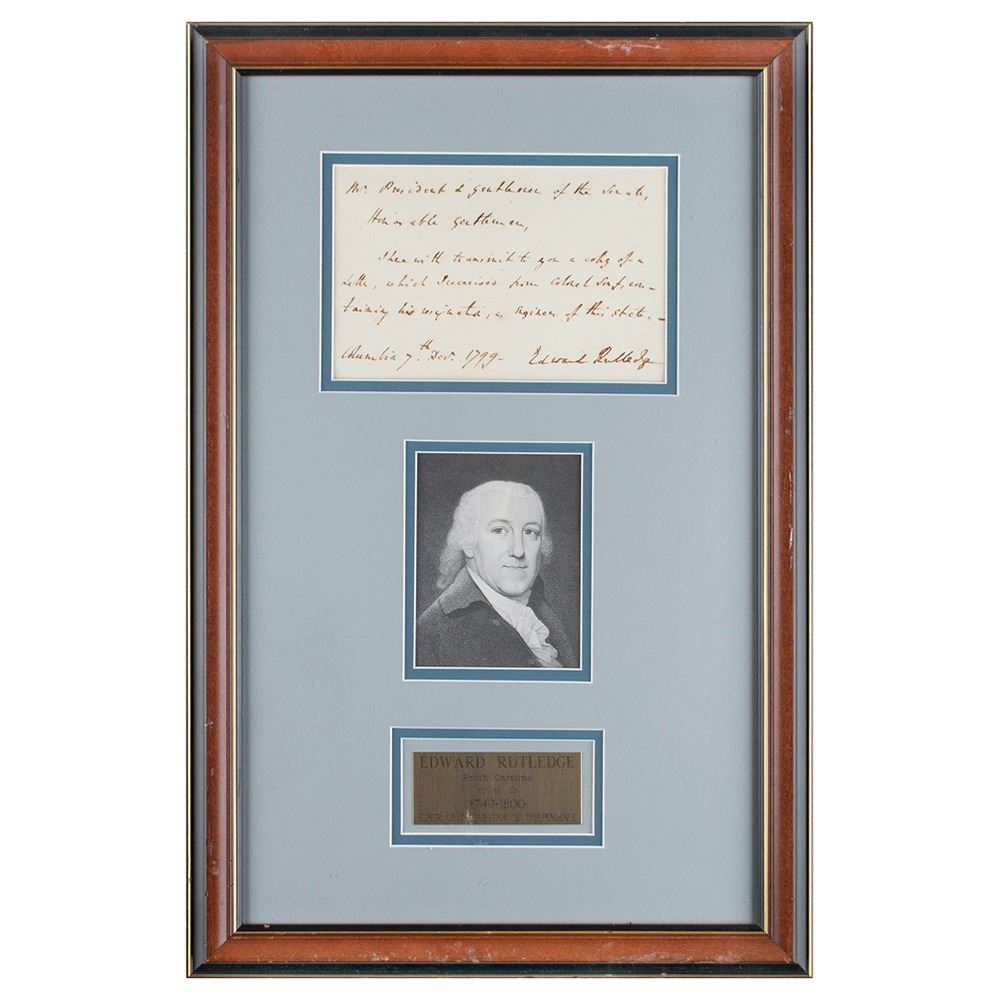 Mr. President & gentlemen of the Senate,
Honorable gentlemen,
I herewith transmit to you a copy of a
Letter, which I received from Colonel Senf, con-
taining his resignation, as Engineer of this State. —
Columbia 7th Decr. 1799 - Edward Rutledge
EDWARD RUTLEDGE
South Carolina
☆ ☆ ☆
1749-1800
SIGNER OF DECLARATION OF INDEPENDENCE